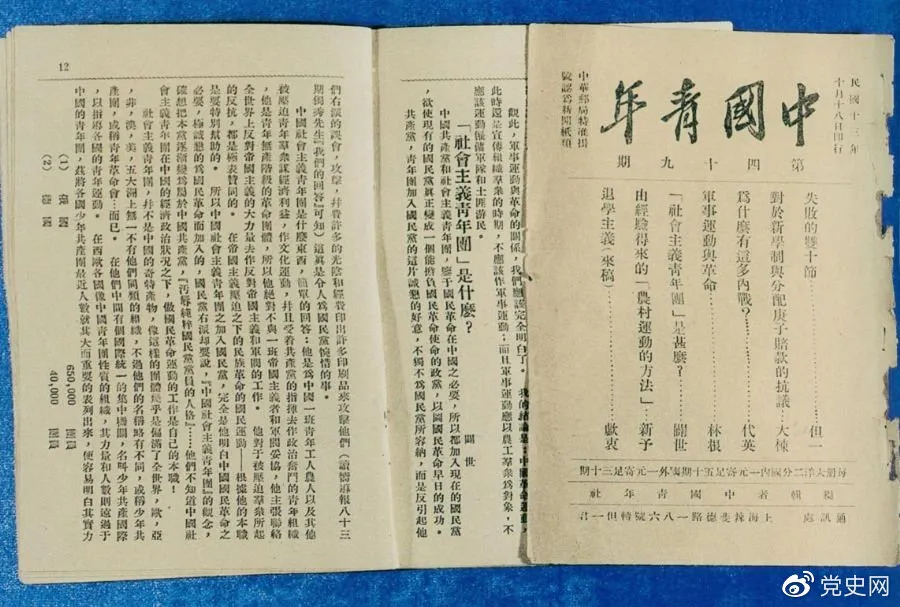 民國十三年
十月十八日印行
中國青年
中華郵局特准掛
號認爲新聞紙類
第四十九期
失敗的雙十節………但一
對於新學制與分配庚子賠款的抗議…大棟
爲什麽有這多內戰?………代英
軍事運動與革命………林根
「社會主義青年團」是甚麽?………關世
由經驗得來的「農村運動的方法」…新予
退學主義(來稿)………獻衷
每册大洋二分國內一元寄足五十期國外一元寄足三十期
編輯者中國青年社
通訊處 上海辣斐德路一八六號轉但一君
觀此,軍事運動與革命的關係,我們應該完全明白了。我的結論是:中國革命運動,
此時還是宣傳組織羣衆的時期,不應該作軍事運動;而且軍事運動應以農工羣衆爲對象,不
應該運動僱傭軍隊和土匪游民。
「社會主義青年團」是什麽?
關世
中國共產黨和社會主義青年團,鑒于國民革命在中國之必要,所以都加入現在的國民黨
,欲使現有的國民黨眞正變成一個能擔負國民革命使命的政黨,以圖國民革命早日的成功。
共產黨,青年團加入國民黨的這片誠懇的好意,不獨不爲國民黨所容納,而是反引起他
12
們右派的誤會,攻擊,幷費許多的光陰和經費印出許多印刷品來攻擊他們(讀嚮導報八十三
期獨秀先生『我們的回答』可知)這眞是令人爲國民黨惋惜的事。
中國社會主義青年團是什麽東西,簡單的回答:他是爲中國一班青年工人農人以及其他
被壓迫青年羣衆謀經濟利益,作文化運動,幷且受着共產黨的指揮去作政治奮鬥的青年組織
,他是青年無產階級的革命團體,所以他絕對不與一班帝國主義者和軍閥妥協,他主張聯絡
全世界上反對帝國主義的大力量去作反對帝國主義和軍閥的工作。他對于被壓迫羣衆所起
的反抗,都是極表贊同的。在帝國主義壓迫之下的民族革命的國民運動——根據他的本職
是要特別幫助的。所以中國社會主義青年團之加入國民黨,完全是他明白中國國民革命之
必要,極誠懇的爲國民革命而加入的,國民黨右派却要說,『中國社會主義青年團』的觀念,
確想把本黨逐漸變爲屬於中國共產黨,『汚辱純粹國民黨黨員的人格』……他們不知道中國社
會主義青年團在中國的經濟政治狀況之下,做國民革命運動的工作是自己的本職!
社會主義青年團,幷不是中國的奇特產物,像這樣的團體幾乎是偏滿了全世界,歐,亞
,非,澳,美,五大洲上無一不有他們同類的組織,不過他們的名稱略有不同,或稱少年共
產團,或稱青年革命會…而已。在他們中間有個國際統一的集中機關,名叫少年共產國際
,以指導各國的青年運動。在西歐各國像中國青年團性質的組織,其力量和人數則遠過于
中國的青年團,茲將各國少年共產團最近人數就其大而重要的表列出來,便容易明白其實力
(1) 650,000 團員
(2) 40,000 團員
党史网